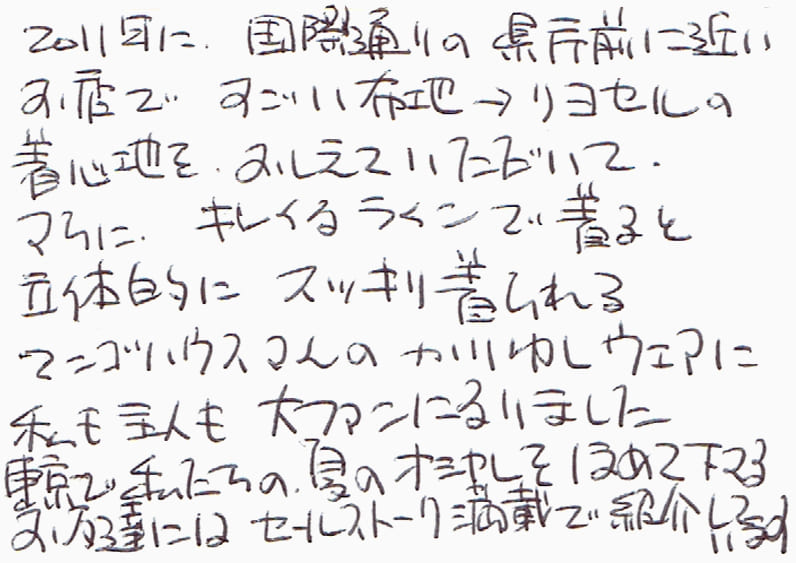 2011年に、国際通りの県庁前に近い
お店で すごい布地→リヨセルの
着心地を、おしえていただいて、
さらに、キレイなラインで着ると
立体的に スッキリ着られる
マンゴハウスさんの かりゆしウェアに
私も主人も 大ファンになりました
東京で私たちの、夏のオシャレをほめて下さる
お方達には セールストーク満載で紹介しています